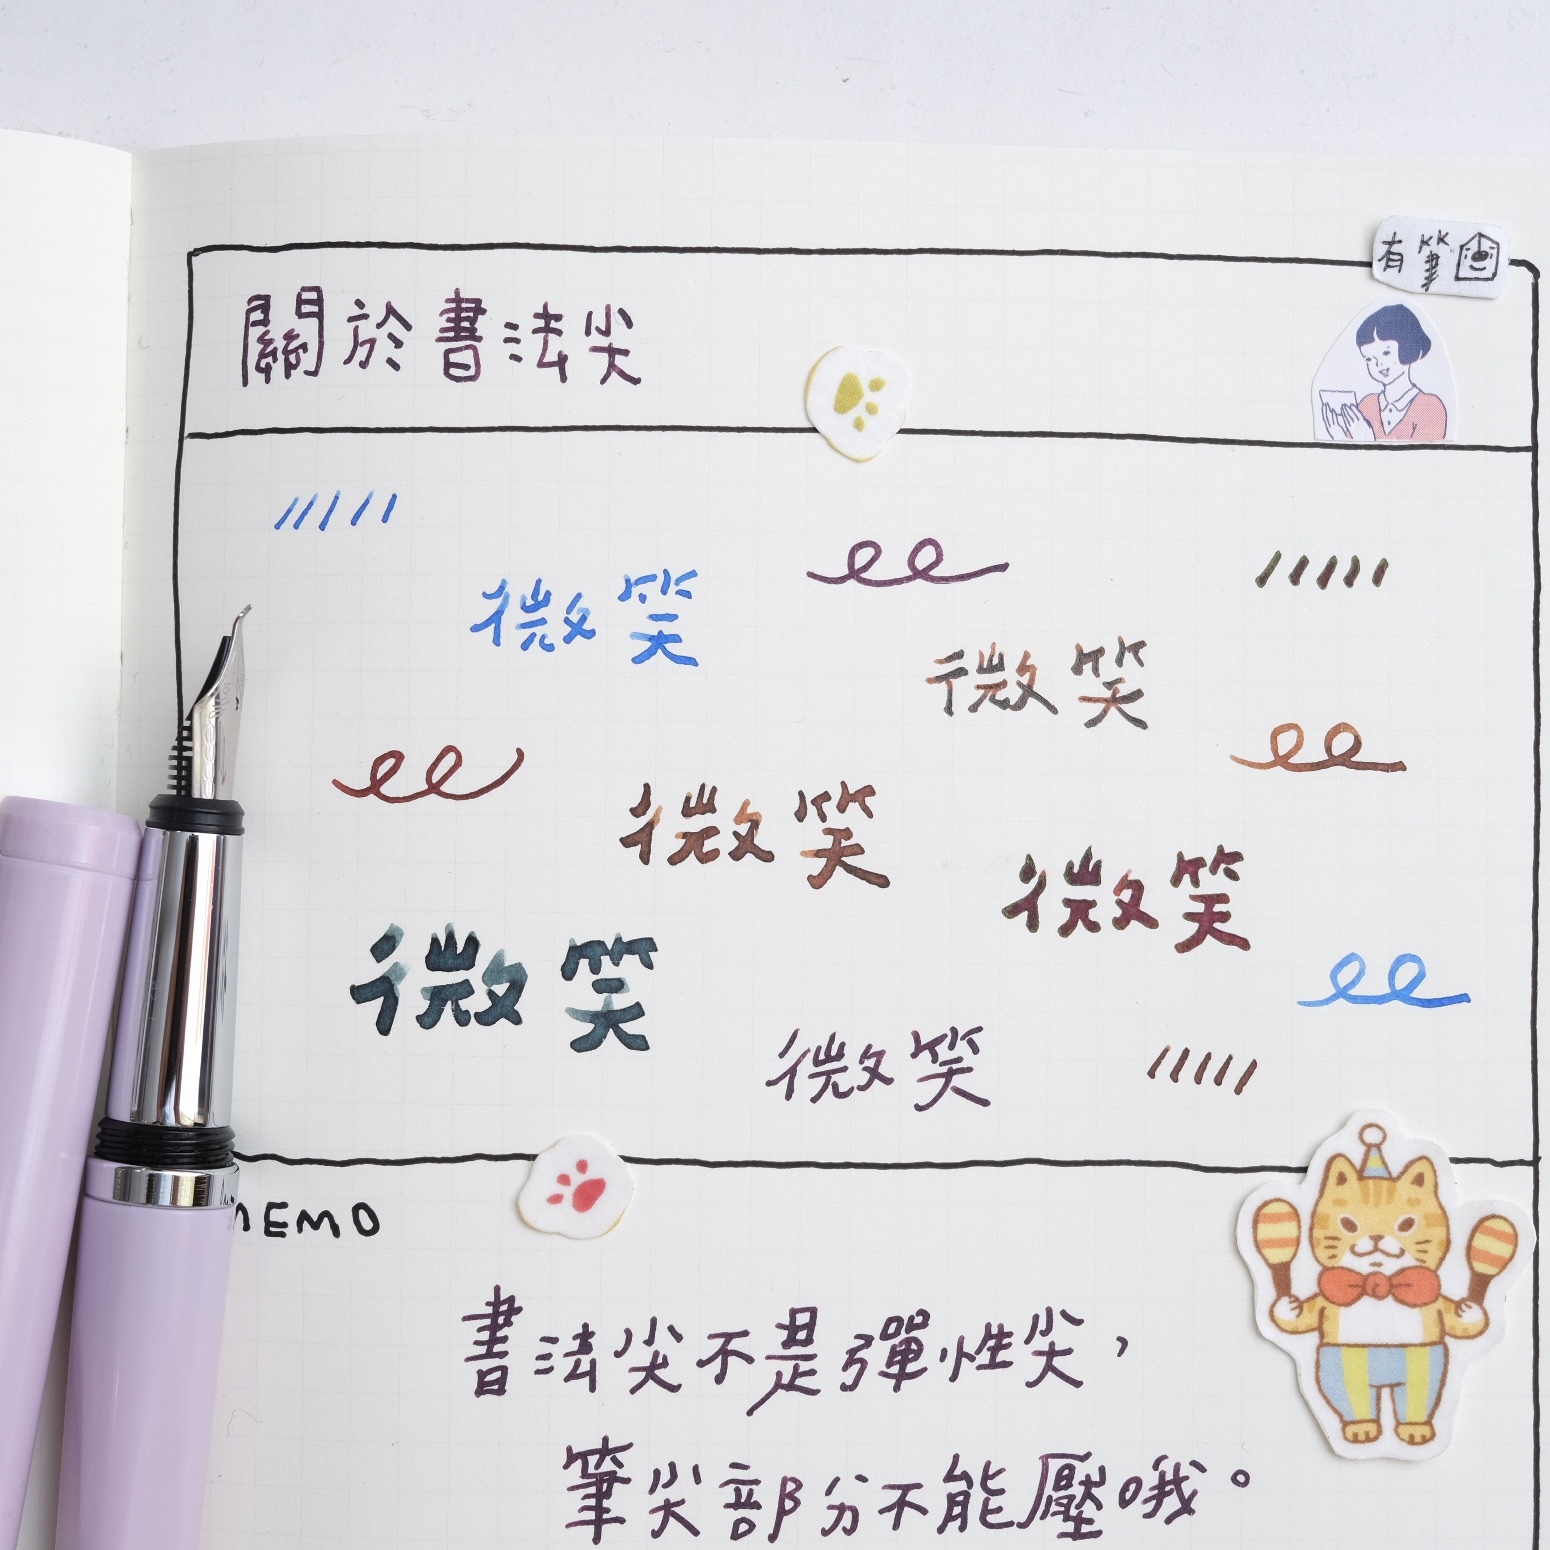 有筆
關於書法尖
微笑
微笑
微笑
微笑
微笑
微笑
MEMO
書法尖不是彈性尖，
筆尖部分不能壓哦。